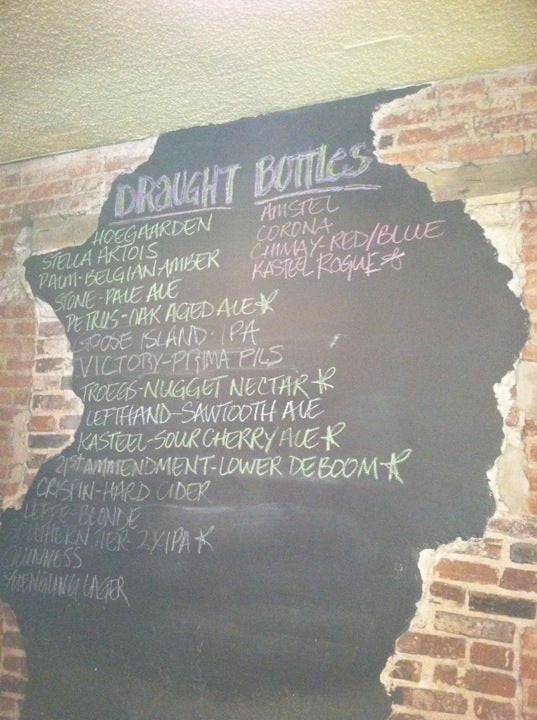 DRAUGHT
HOEGAARDEN
STELLA ARTOIS
PALM-BELGIAN AMBER
STONE-PALE ALE
PETRUS-OAK AGED ALE☆
GOOSE ISLAND-IPA
VICTORY-PRIMA PILS
TROEGS-NUGGET NECTAR☆
LEFTHAND-SAWTOOTH ALE
KASTEEL-SOUR CHERRY ALE☆
21st AMMENDMENT-LOWER DE BOOM☆
CRISPIN-HARD CIDER
LEFFE-BLONDE
SOUTHERN TIER-2XIPA☆
GUINNESS
YUENGLING LAGER
BOTTLES
AMSTEL
CORONA
CHIMAY-RED/BLUE
KASTEEL ROGUE☆